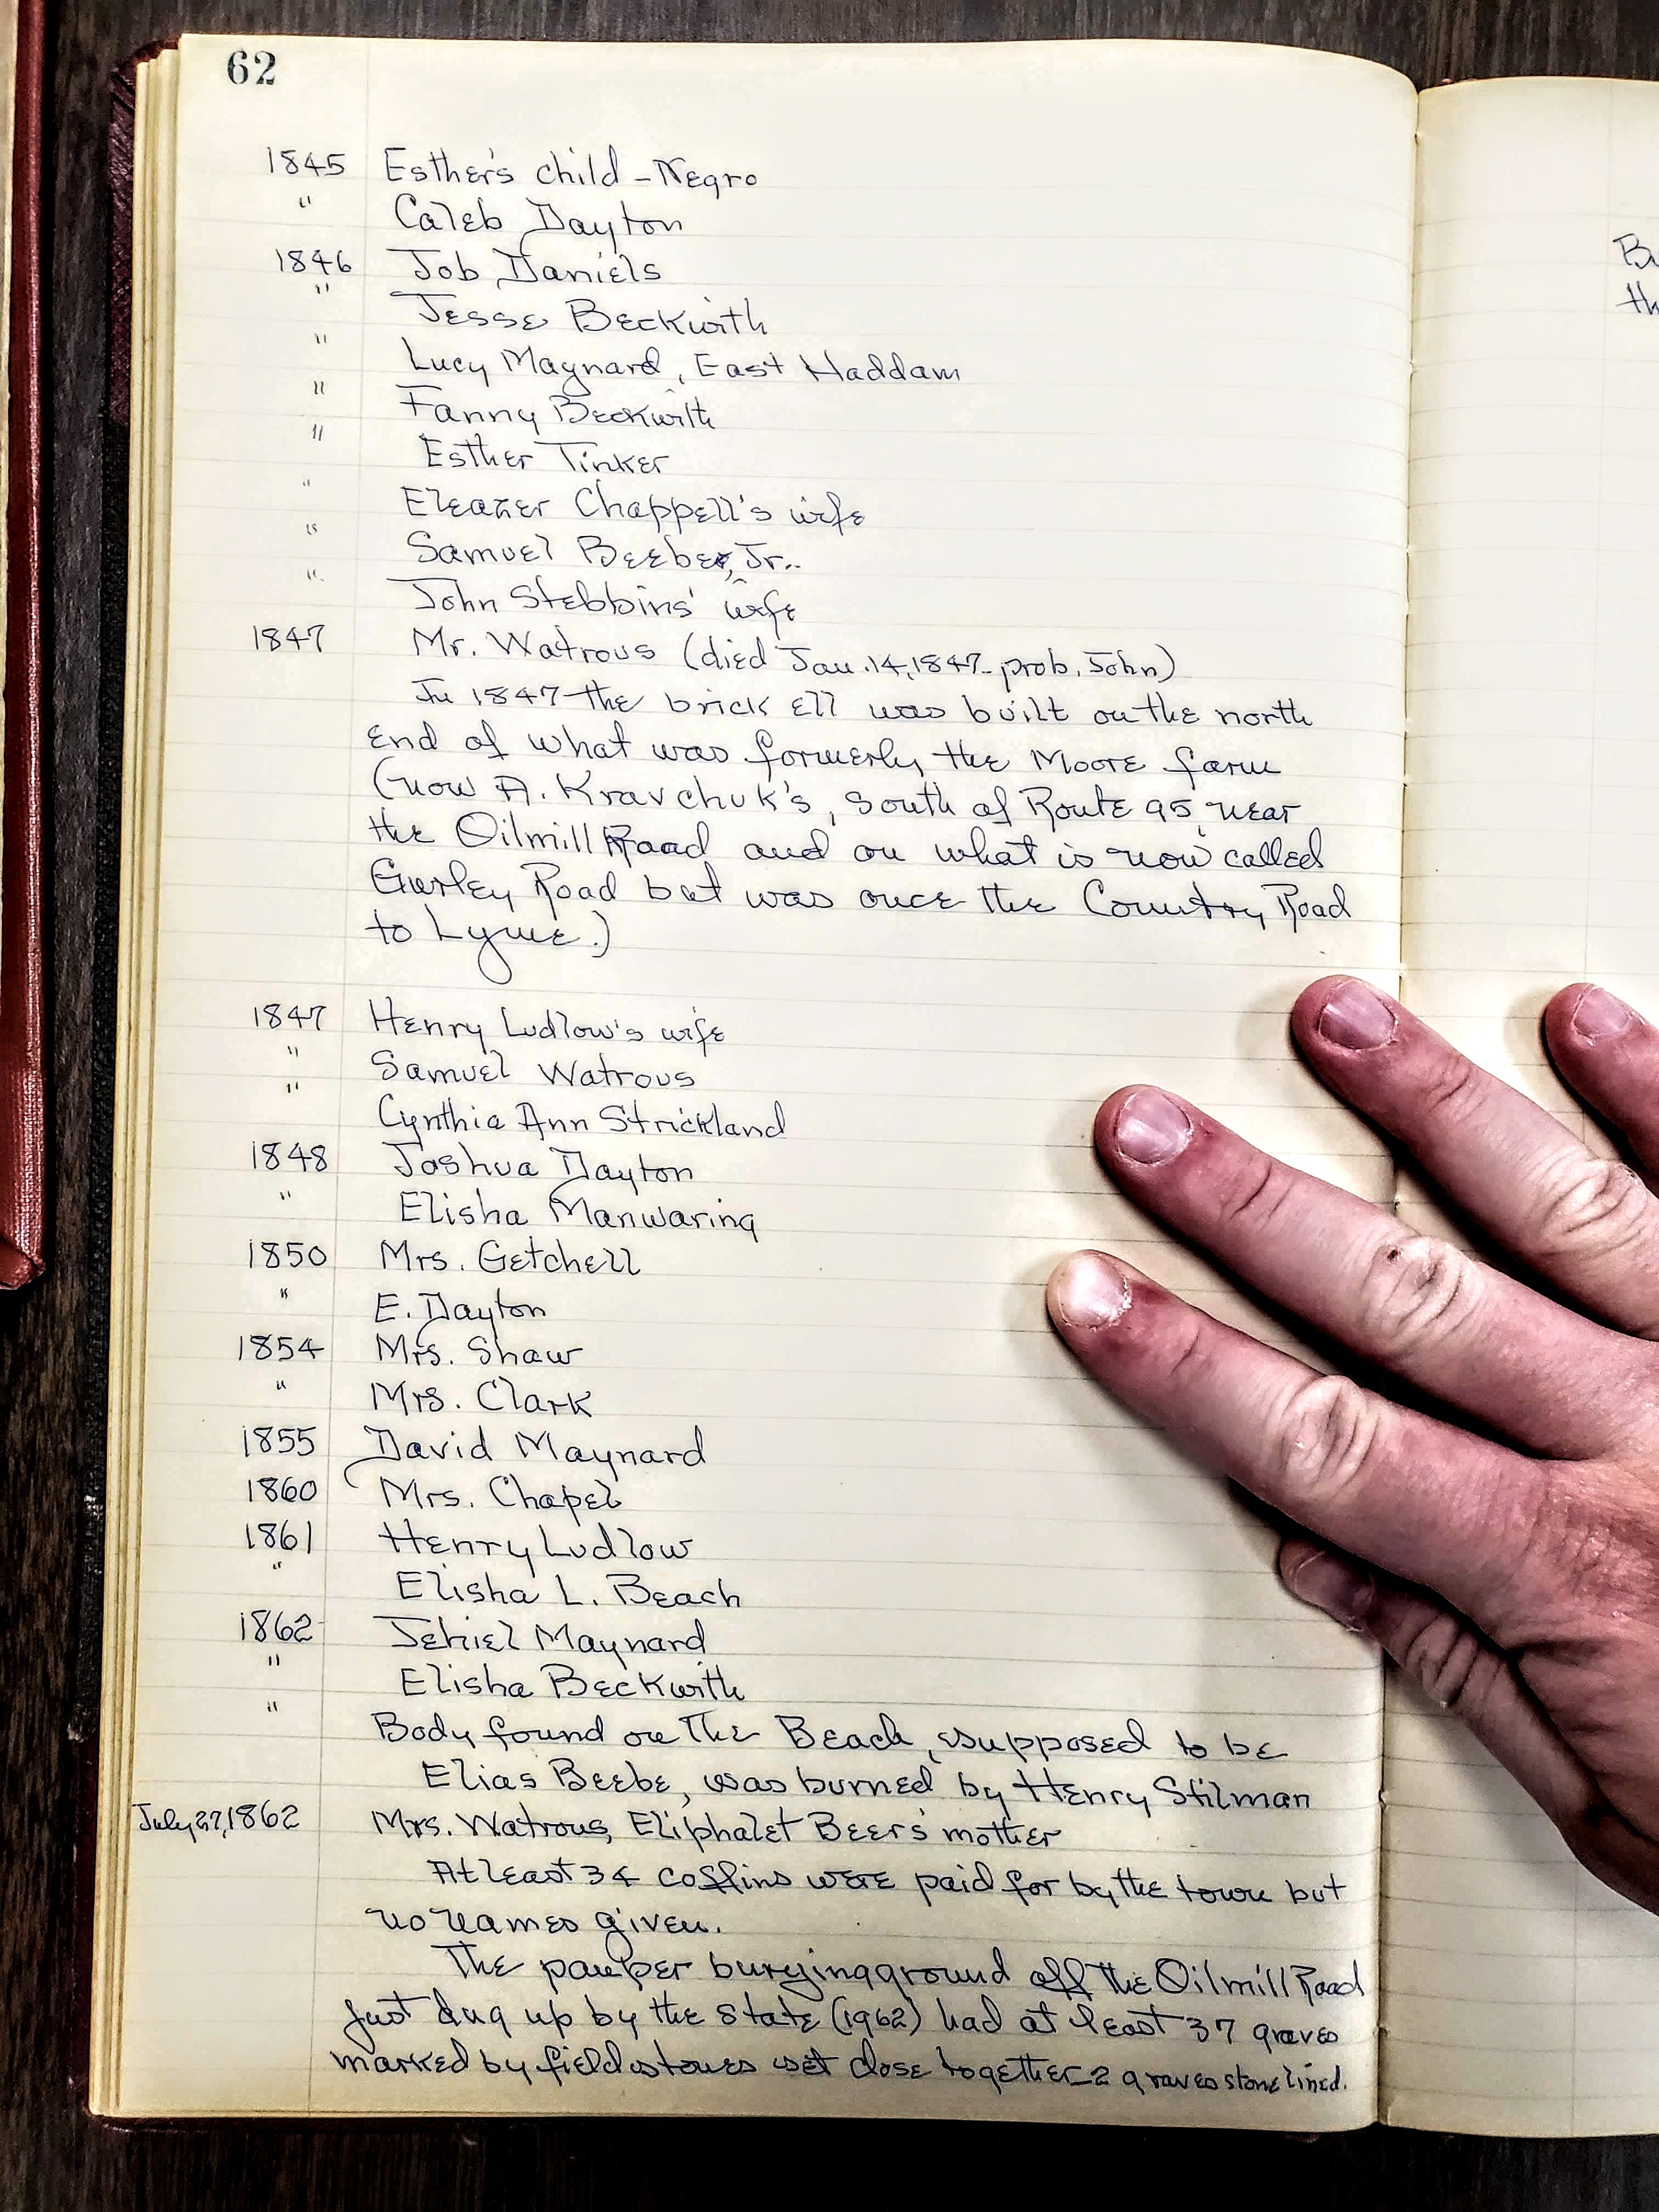 62
1845 Esther's child - Negro
" Caleb Dayton
1846 Job Daniels
" Jesse Beckwith
" Lucy Maynard, East Haddam
" Fanny Beckwith
" Esther Tinker
" Eleazer Chappell's wife
" Samuel Beebe, Jr.
" John Stebbins' wife
1847 Mr. Watrous (died Jan. 14, 1847 - prob. John)
In 1847 the brick ell was built on the north
end of what was formerly the Moore farm
(now A. Kravchuk's, south of Route 95, near
the Oilmill Road and on what is now called
Gurley Road but was once the Country Road
to Lyme.)
1847 Henry Ludlow's wife
" Samuel Watrous
" Cynthia Ann Strickland
1848 Joshua Dayton
" Elisha Manwaring
1850 Mrs. Getchell
" E. Dayton
1854 Mrs. Shaw
" Mrs. Clark
1855 David Maynard
1860 Mrs. Chapel
1861 Henry Ludlow
" Elisha L. Beach
1862 Jehiel Maynard
" Elisha Beckwith
" Body found on the Beach, supposed to be
Elias Beebe, was burned by Henry Stilman
July 27, 1862 Mrs. Watrous, Eliphalet Beers' mother
At least 34 coffins were paid for by the town but
no names given.
The pauper burying ground off the Oilmill Road
just dug up by the State (1962) had at least 37 graves
marked by fieldstones set close together - 2 graves stone lined.